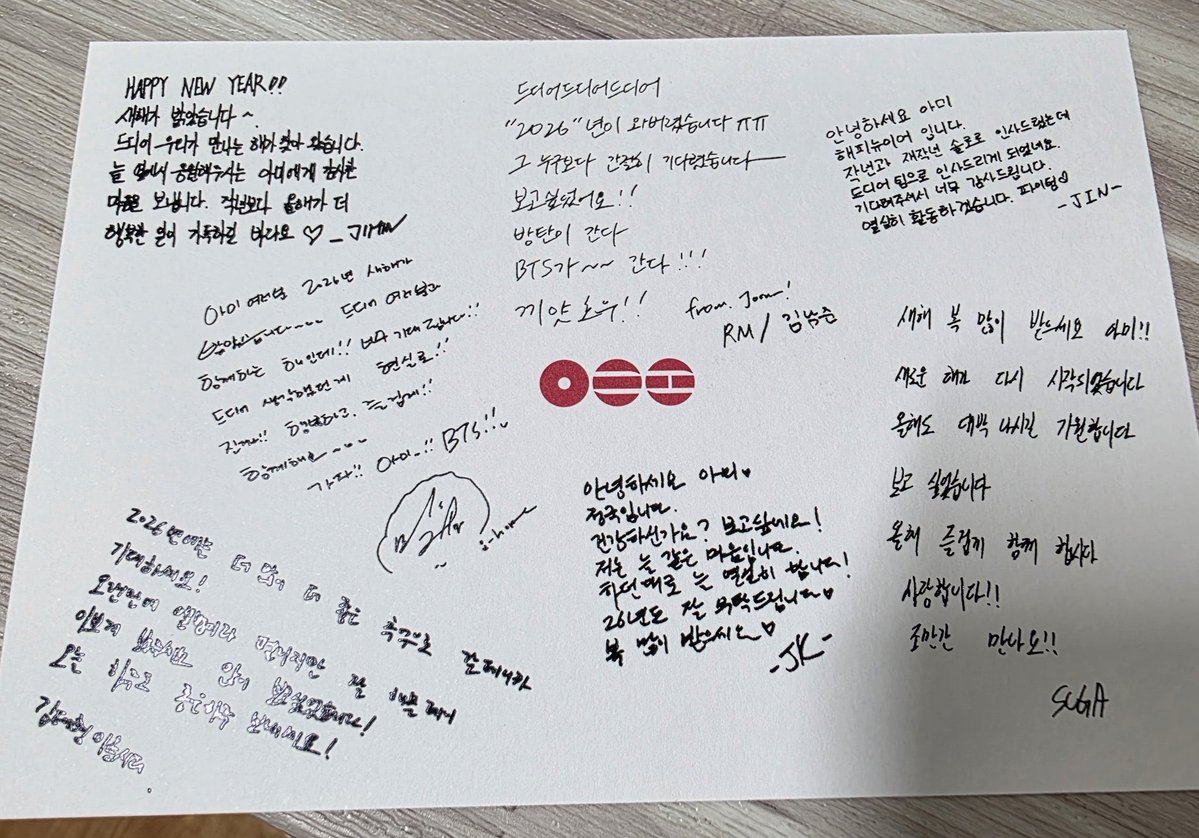 HAPPY NEW YEAR!!
새해가 밝았습니다~.
드디어 우리가 만나는 해가 찾아 왔습니다.
늘 옆에서 응원해주시는 아미에게 감사한
마음을 보냅니다. 작년보다 올해가 더
행복한 일이 가득하길 바라요 ♡ _JIMIN
드디어드디어드디어
"2026"년이 와버렸습니다 ㅠㅠ
그 누구보다 간절히 기다렸습니다
보고싶었어요!!
방탄이 간다
BTS가~~ 간다!!!
끼얏호우!!
from. Joon!
RM / 김남준
안녕하세요 아미
해피뉴이어 입니다.
작년과 재작년 솔로로 인사드렸는데
드디어 팀으로 인사드리게 되었네요.
기다려주셔서 너무 감사드립니다.
열심히 활동하겠습니다. 파이팅♡
-JIN-
아미 여러분 2026년 새해가
밝았습니다~~ 드디어 여러분과
함께하는 해인데!! 너무 기대됩니다!!
드디어 생각했던게 현실로!!
진짜!! 행복하고, 즐겁게!!
함께해요~~
가자!! 아미_!! BTS!!
j-hope
새해 복 많이 받으세요 아미!!
새로운 해가 다시 시작되었습니다
올해도 대박 나시길 기원합니다
보고 싶었습니다
올해 즐겁게 함께 합시다
사랑합니다!!
조만간 만나요!!
SUGA
2026년에는 더 많이 더 좋은 추억으로 갈테니까
기대하세요!
오랜만에 앨범이라 떨리지만 잘 해볼테니
이쁘게 봐주시고 많이 보고싶었습니다!
오늘 하루도 좋은하루 보내세요!
김태형 이었습니다.
안녕하세요 아미♥
정국입니다.
건강하신가요? 보고싶네요!
저는 늘 같은 마음입니다.
하던대로 늘 열심히 합니다!
26년도 잘 부탁드립니다♥
복 많이 받으시오♡
-JK-